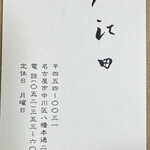 田
〒四五四-〇〇三一
名古屋市中川区八幡本通二
電話(〇五二)三五三-六〇
定休日 月曜日